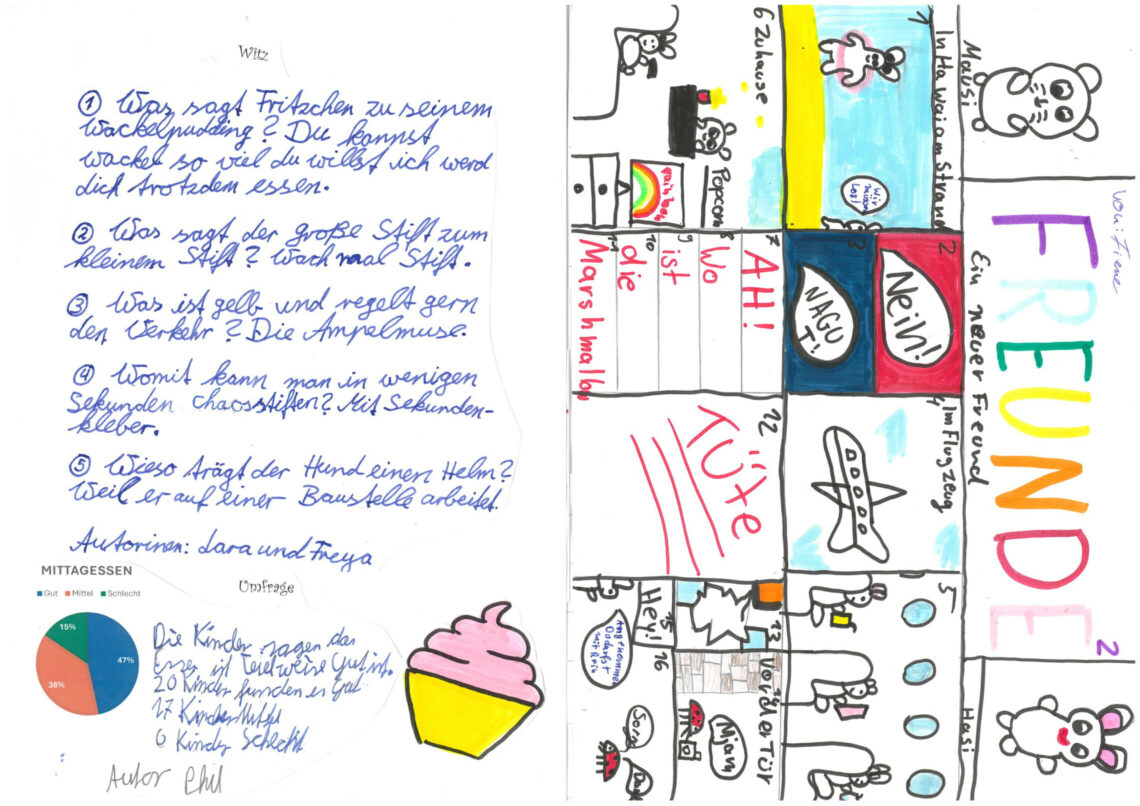 Witz
① Was sagt Fritzchen zu seinem
Wackelpudding? Du kannst
wackel so viel du willst ich werd
dich trotzdem essen.
② Was sagt der große Stift zum
kleinem Stift? Wach mal Stift.
③ Was ist gelb und regelt gern
den Verkehr? Die Ampelmuse.
④ Womit kann man in wenigen
Sekunden chaosstiften? Mit Sekunden-
kleber.
⑤ Wieso trägt der Hund einen Helm?
Weil er auf einer Baustelle arbeitet.
Autorinen: Lara und Freya
MITTAGESSEN
Gut Mittel Schlecht
15%
47%
38%
Umfrage
Die Kinder sagen das
Essen ist Teilweise Gut ist.
20 Kinder funden es Gut
17 Kinder Mittel
6 Kinder Schlecht
Autor Phil
von: Irene
FREUNDE 2
Ein neuer Freund
Mausi
Hasi
1 In Hawai am Strand
Wir müssen los!
2
Neih!
3
NAGU
T!
4 Im Flugzeug
5
6 Zuhause
Popcorn
7
AH!
8
Wo
9
ist
10
die
11
Marshmallow
12
Tüte
13
Vor der Tür
Mjam
15
Hey!
16
Sorry